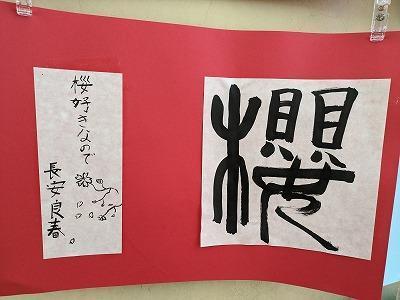 櫻
桜好きなので
長安良春